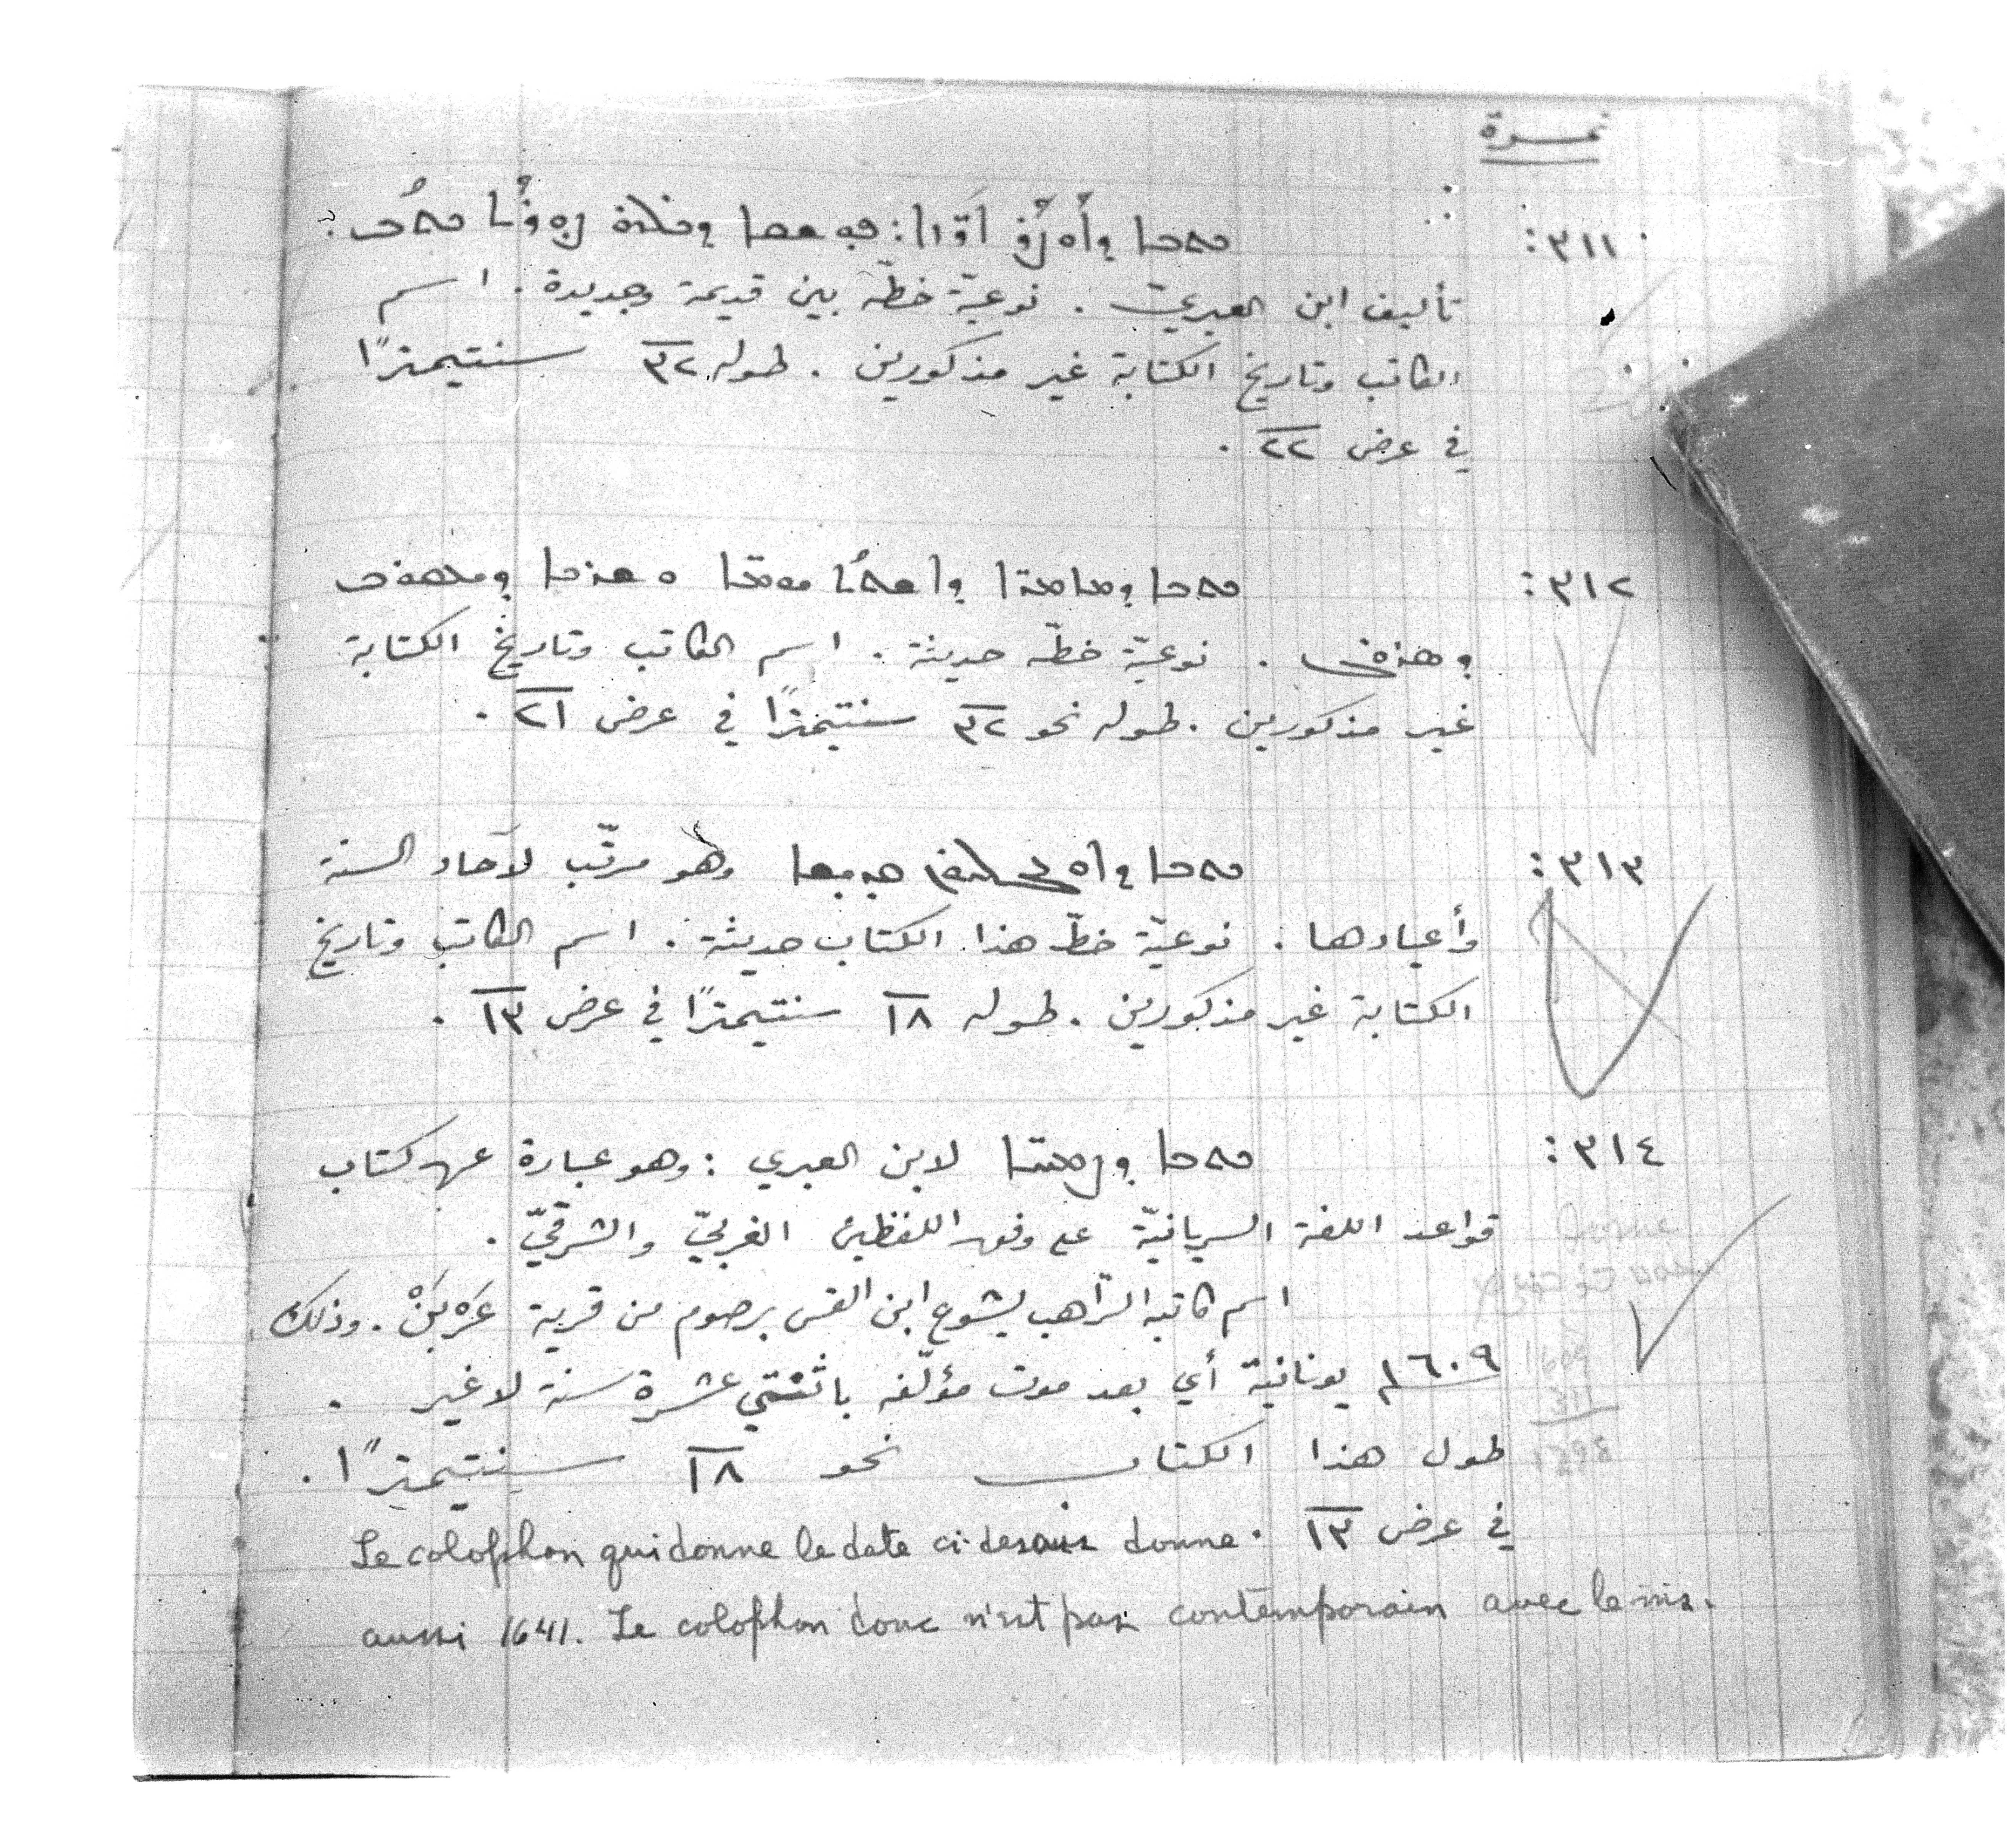 نمرة
٣١١: ܟܬܒܐ ܕܐܘܨܪ ܐܪ̈ܙܐ: ܦܘܫܩܐ ܕܟܠܗ ܨܘܪܬܐ ܟܬܒ:
تأليف ابن العبريّ . نوعيّة خطّه بين قديمة وجديدة . اسم
الكاتب وتاريخ الكتابة غير مذكورين . طوله ٣٢ سنتيمترًا
في عرض ٢٢ .
٣١٢: ܟܬܒܐ ܕܡܐܡܪ̈ܐ ܕܐܣܟܬܐ
. نوعيّة خطّه حديثة . اسم الكاتب وتاريخ الكتابة
غير مذكورين . طوله نحو ٣٢ سنتيمترًا في عرض ٢١ .
٣١٣: ܟܬܒܐ ܕܐܘܢܓܠܝܘܢ ܩܕܝܫܐ وهو مرتّب لآحاد السنة
وأعيادها . نوعيّة خطّ هذا الكتاب حديثة . اسم الكاتب وتاريخ
الكتابة غير مذكورين . طوله ١٨ سنتيمترًا في عرض ١٣ .
٣١٤: ܟܬܒܐ ܕܨܡܚ̈ܐ لابن العبري : وهو عبارة عن كتاب
قواعد اللغة السريانيّة على وفق اللفظين الغربيّ والشرقيّ .
اسم كاتبه الرّاهب يشوع ابن القس برصوم من قرية . وذلك
١٦٠٩ يونانيّة أي بعد موت مؤلّفه باثنتي عشرة سنة لا غير .
طول هذا الكتاب نحو ١٨ سنتيمترًا .
في عرض ١٣ .
Le colophon qui donne la date ci-dessus donne
aussi 1641. Le colophon donc n'est pas contemporain avec le ms.
1609
311
1298